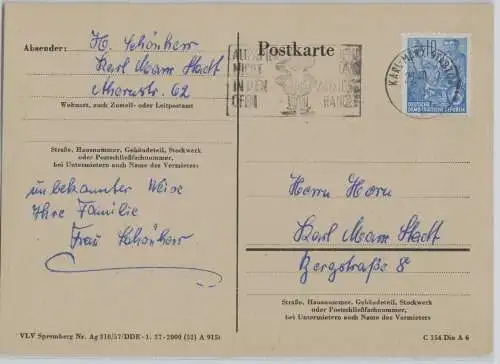 Absender: H. Schönherr
Karl Marx Stadt
Ahornstr. 62
Wohnort, auch Zustell- oder Leitpostamt
Straße, Hausnummer, Gebäudeteil, Stockwerk
oder Postschließfachnummer,
bei Untermietern auch Name des Vermieters
unbekannter Weise
Ihre Familie
Frau Schönherr
VLV Spremberg Nr. Ag 310/57/DDR - 1. 57 - 2000 (52) A 915)
Postkarte
NICHT
IN DEN
OFEN
KARL-MARX-STADT
10
DEUTSCHE
DEMOKRATISCHE REPUBLIK
Herrn Horn
Karl Marx Stadt
Bergstraße 8
Straße, Hausnummer, Gebäudeteil, Stockwerk
oder Postschließfachnummer,
bei Untermietern auch Name des Vermieters
C 154 Din A 6